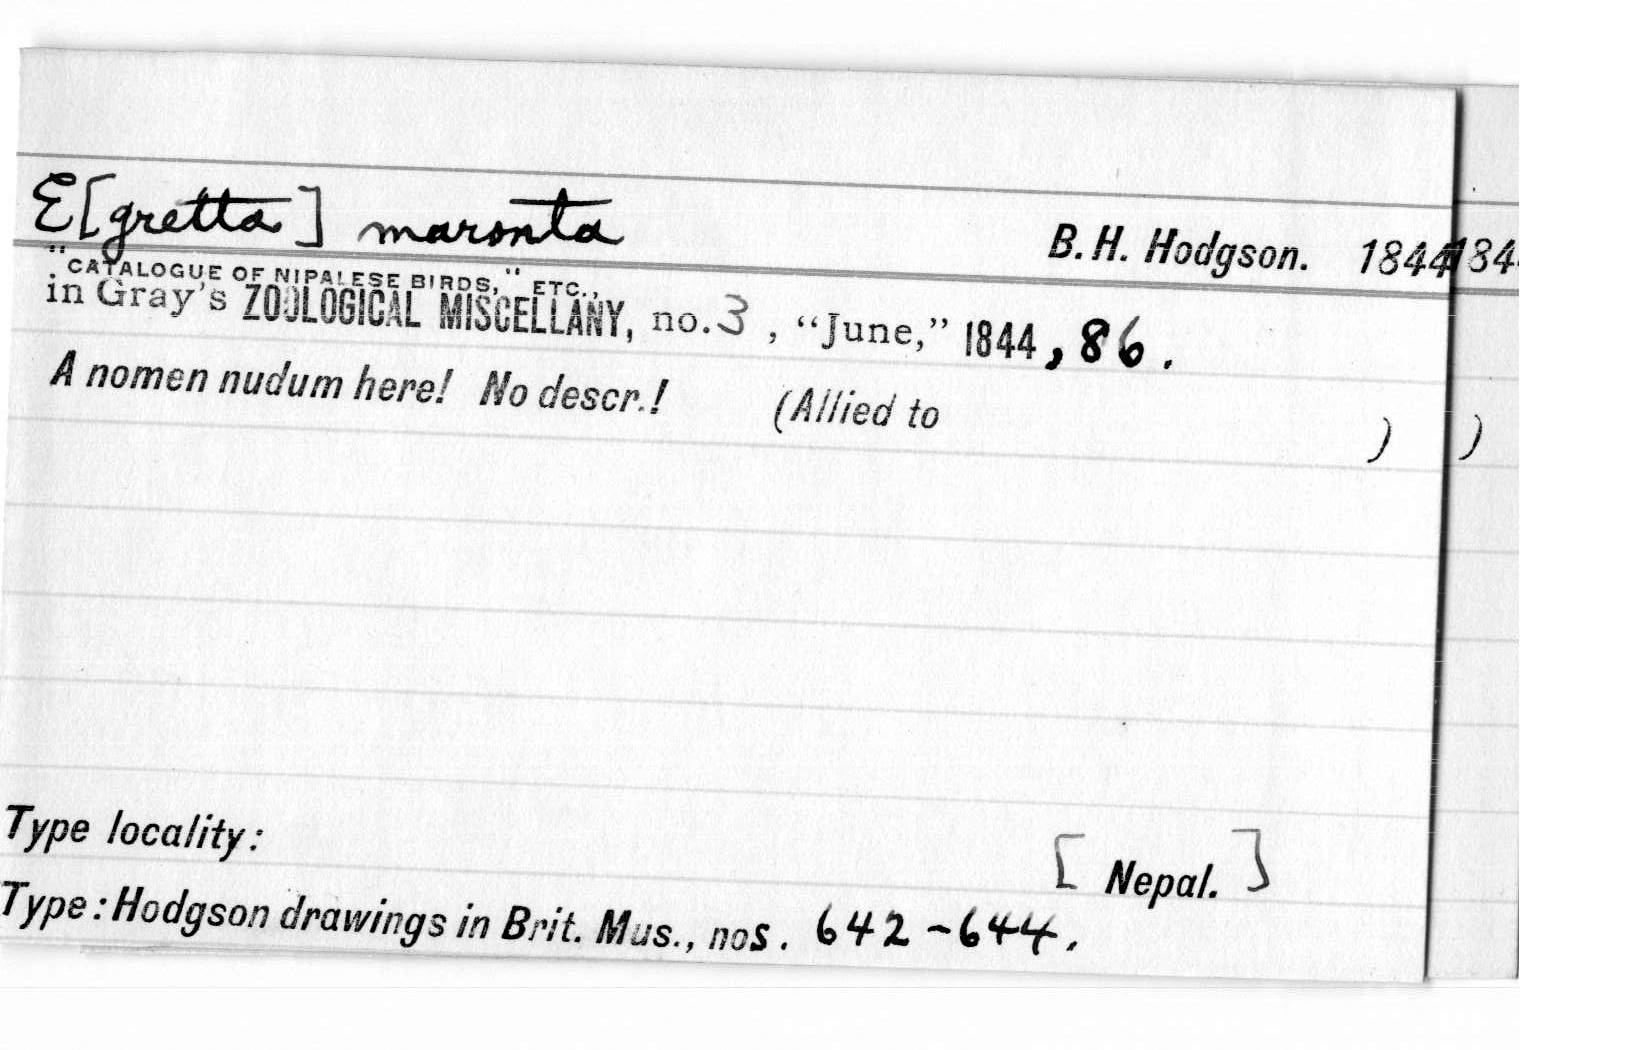 E[gretta] maronta
B. H. Hodgson. 1844 184
"CATALOGUE OF NIPALESE BIRDS," ETC.,
in Gray's ZOOLOGICAL MISCELLANY, no. 3, "June," 1844, 86.
A nomen nudum here! No descr.! (Allied to ) )
Type locality: [Nepal.]
Type: Hodgson drawings in Brit. Mus., nos. 642-644.